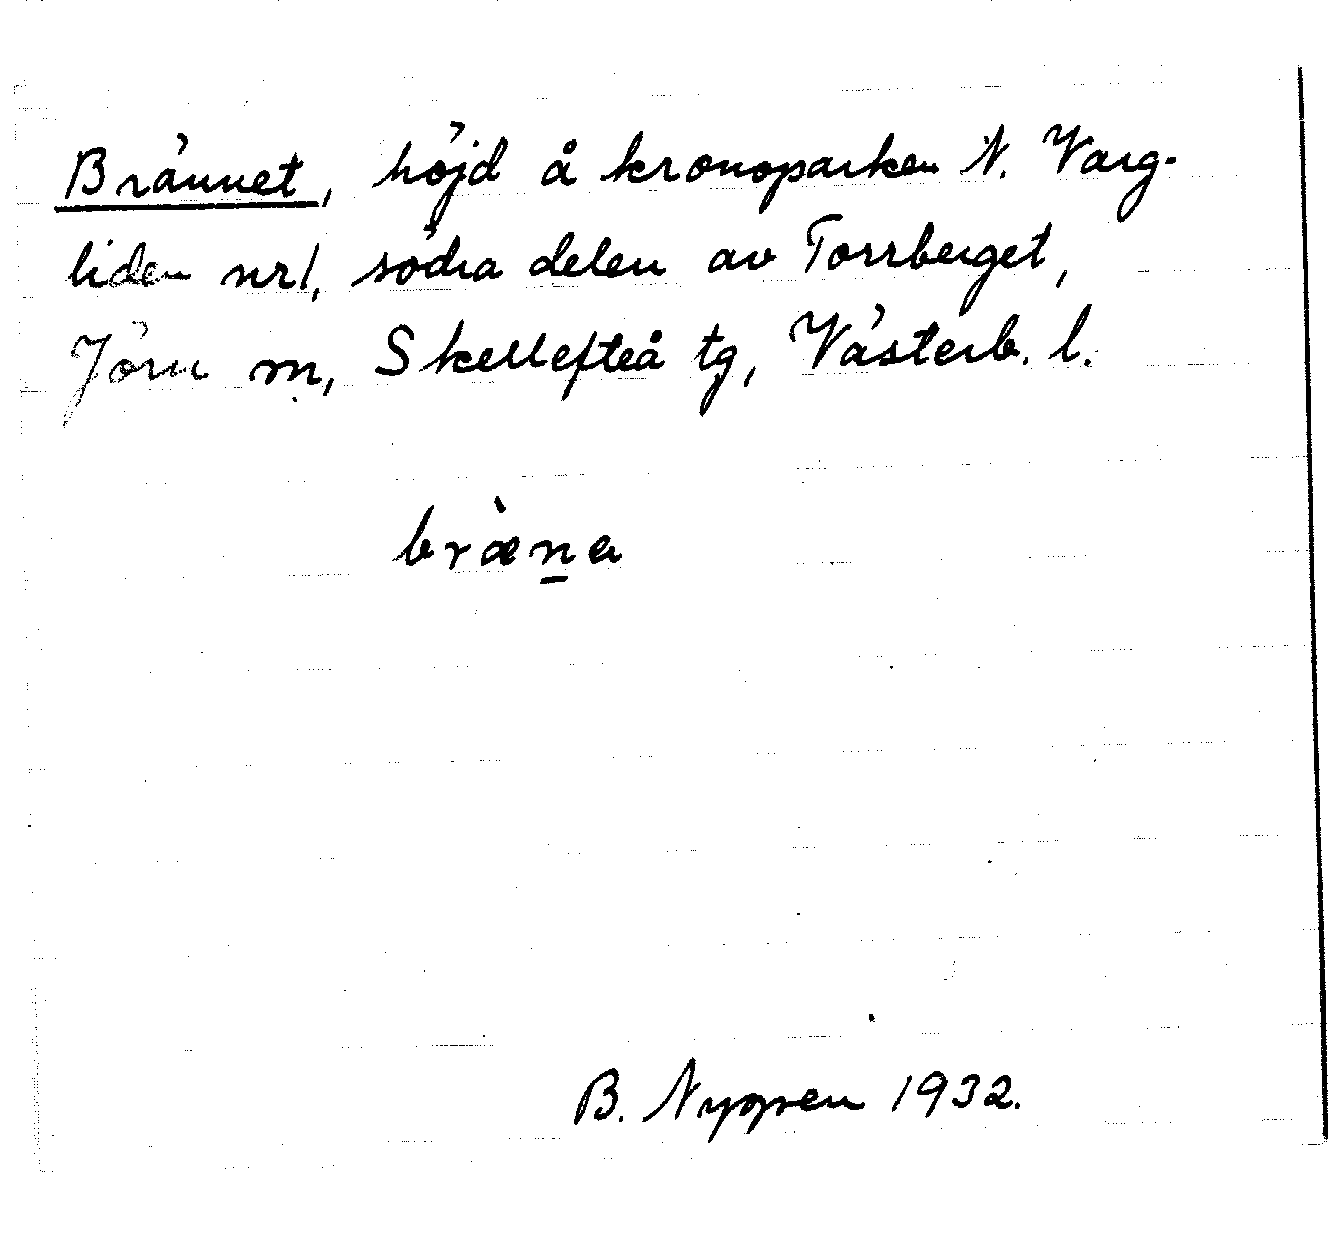 Brännet, höjd å kronoparken N. Varg-
liden nr 1, södra delen av Torrberget,
Jörn m, Skellefteå tg, Västerb. l.
bræ̀n̲a
B. Nygren 1932.